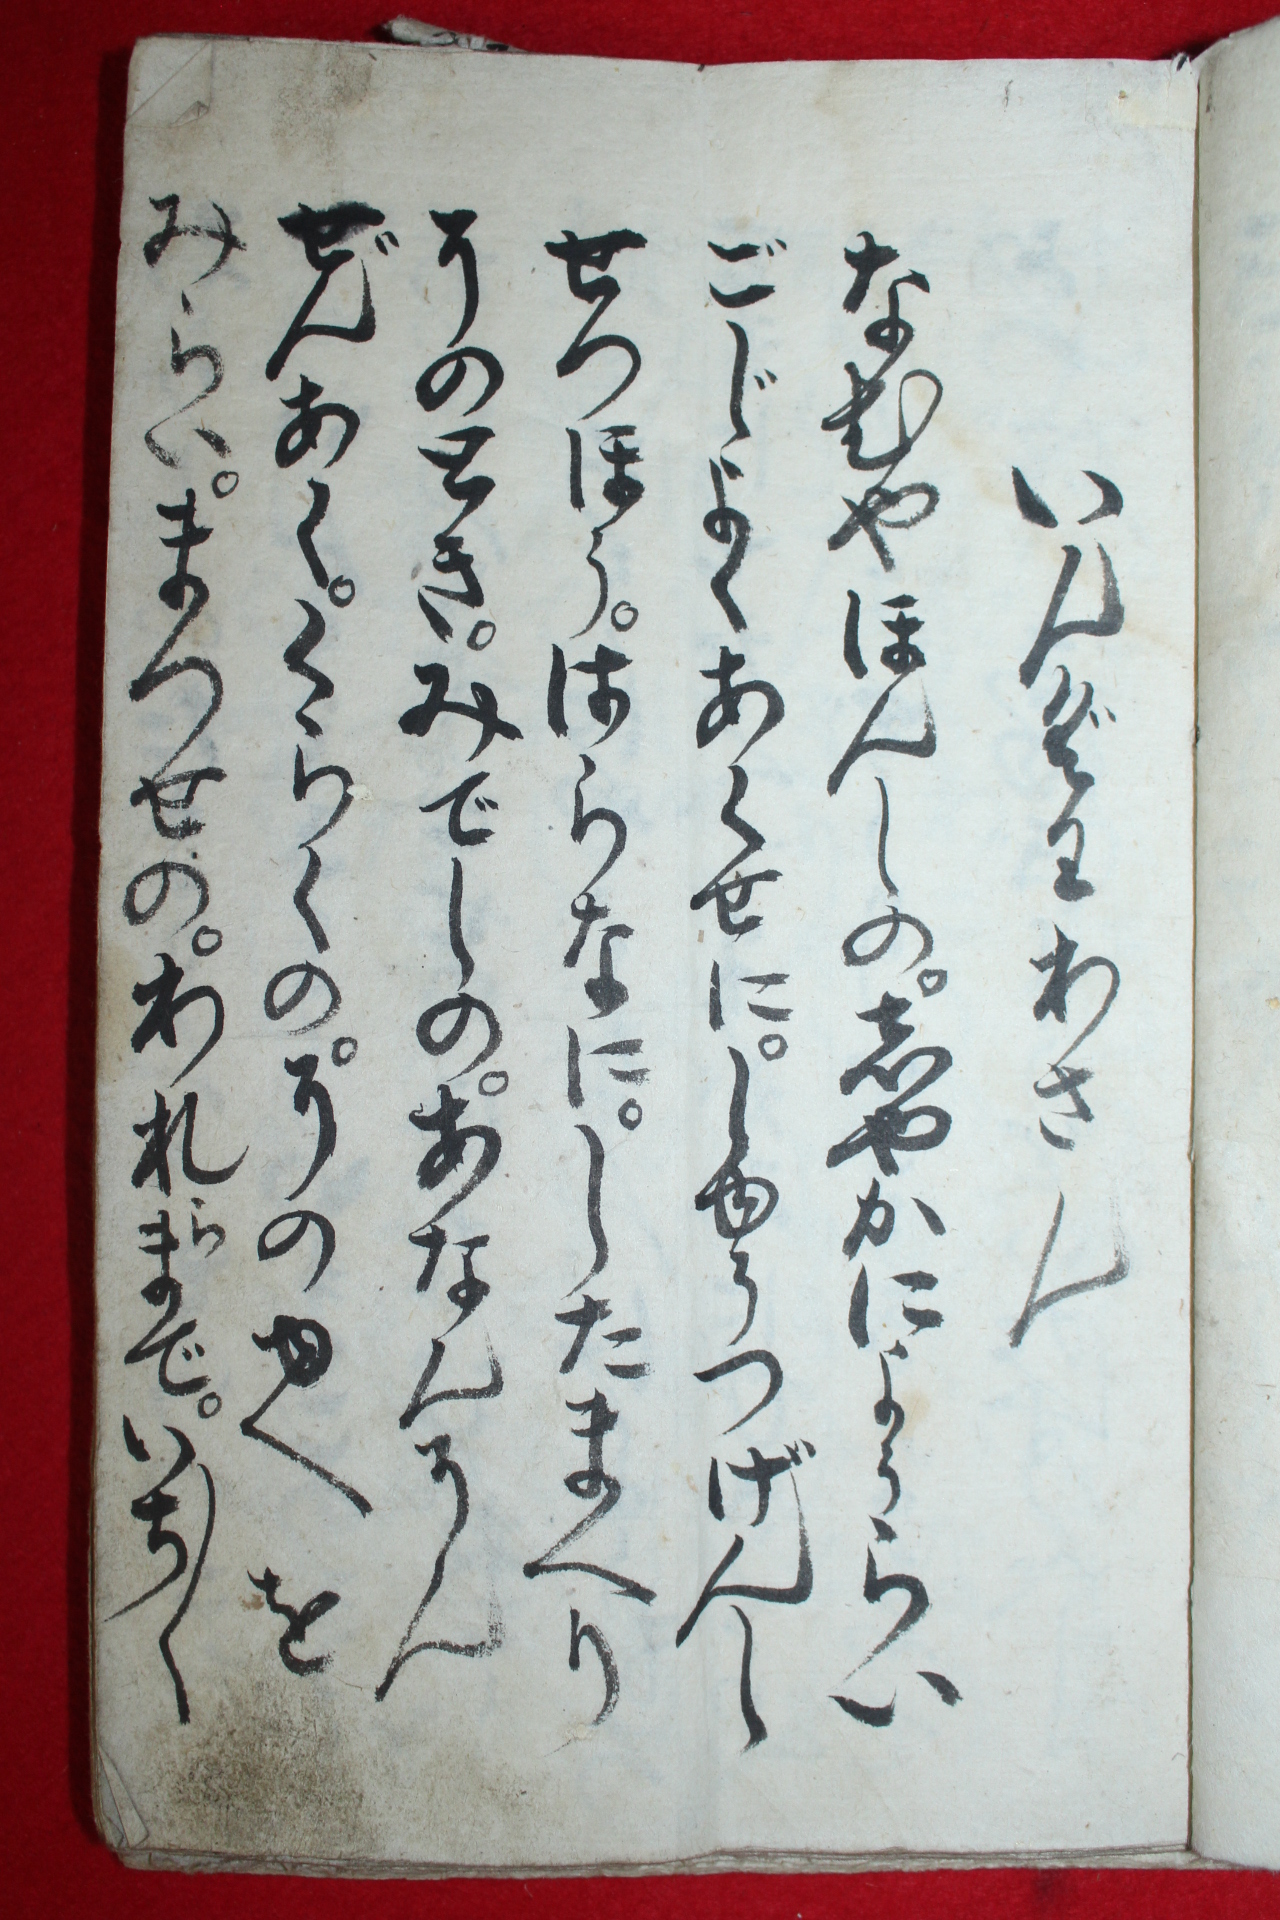 いんぐわわさん
なむやほんしの。志やかにようらい
ごじよくあくせに。しゆうつげんし
せつほう。はらなに。したまへり
そのとき。みでしの。あなんそん
ぜんあく。くらくの。そのゆへを
みらい。まつせの。われらまで。いち〱